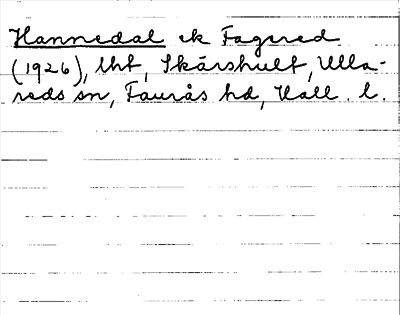 Hannedal ek Fagered
(1926), lht, Skärshult, Ulla-
reds sn, Faurås hd, Hall. l.